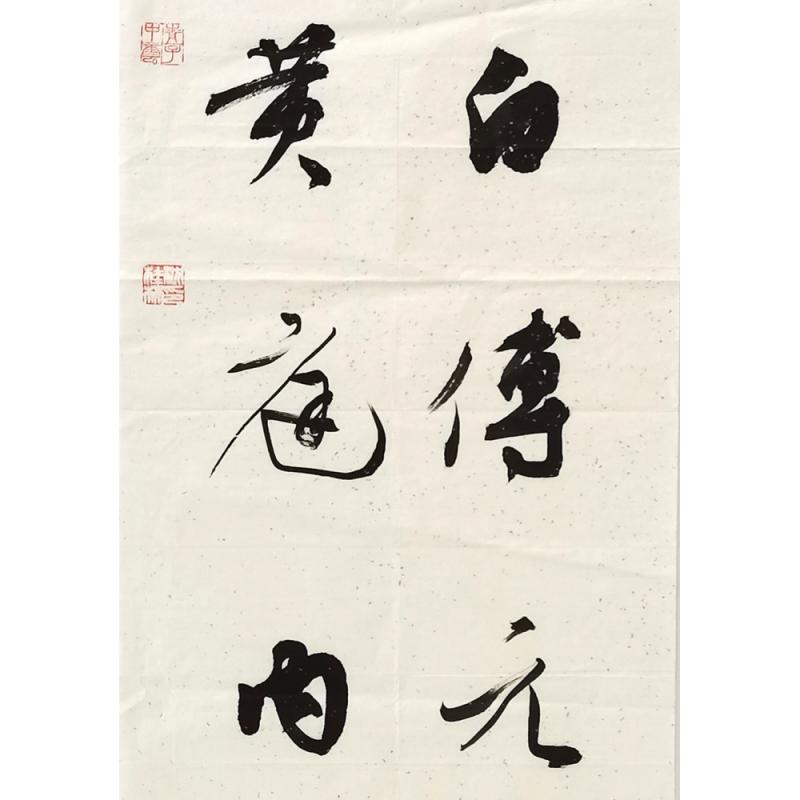 白傅元
黄庭内